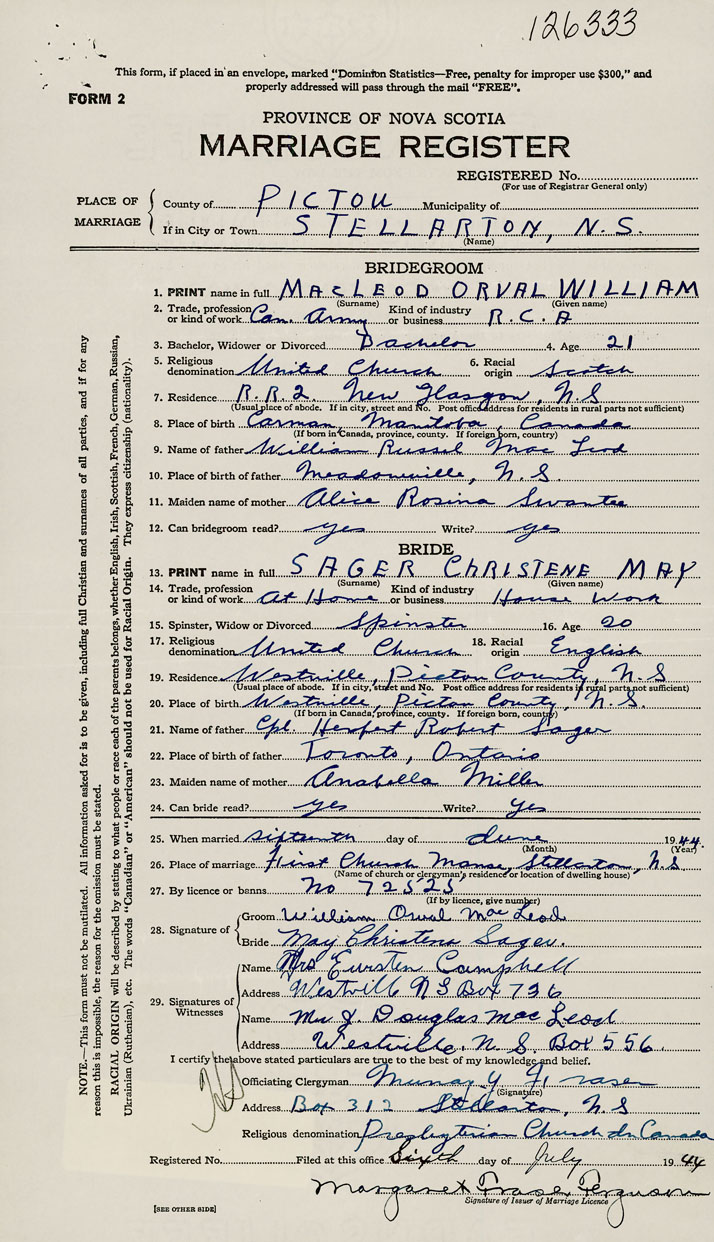 126333
This form, if placed in an envelope, marked "Dominion Statistics—Free, penalty for improper use $300," and
properly addressed will pass through the mail "FREE".
FORM 2
PROVINCE OF NOVA SCOTIA
MARRIAGE REGISTER
REGISTERED No.
(For use of Registrar General only)
PLACE OF MARRIAGE
County of PICTOU Municipality of
If in City or Town STELLARTON, N.S.
(Name)
BRIDEGROOM
1. PRINT name in full MACLEOD ORVAL WILLIAM
(Surname) (Given name)
2. Trade, profession or kind of work Can. Army Kind of industry or business R.C.A
3. Bachelor, Widower or Divorced Bachelor 4. Age 21
5. Religious denomination United Church 6. Racial origin Scotch
7. Residence R.R.2. New Glasgow, N.S
(Usual place of abode. If in city, street and No. Post office address for residents in rural parts not sufficient)
8. Place of birth Carman, Manitoba, Canada
(If born in Canada, province, county. If foreign born, country)
9. Name of father William Russel Mac Leod
10. Place of birth of father Meadowville, N.S
11. Maiden name of mother Alice Rosina
12. Can bridegroom read? yes Write? yes
BRIDE
13. PRINT name in full SAGER ChRISTENE MAY
(Surname) (Given name)
14. Trade, profession or kind of work At Home Kind of industry or business House Work
15. Spinster, Widow or Divorced Spinster 16. Age 20
17. Religious denomination United Church 18. Racial origin English
19. Residence Westville, Pictou County, N.S
(Usual place of abode. If in city, street and No. Post office address for residents in rural parts not sufficient)
20. Place of birth Westville, Pictou County, N.S.
(If born in Canada, province, county. If foreign born, country)
21. Name of father Cpl. Herbert Robert Sager
22. Place of birth of father Toronto, Ontario
23. Maiden name of mother Anabella Miller
24. Can bride read? yes Write? yes
25. When married sixteenth day of June 1944.
(Month) (Year)
26. Place of marriage First Church Manse, Stellarton, N.S
(Name of church or clergyman's residence or location of dwelling house)
27. By licence or banns No 72525
(If by licence, give number)
28. Signature of
Groom William Orval Mac Leod
Bride May Christena Sager.
29. Signatures of Witnesses
Name Mrs Campbell
Address Westville N S Box 736
Name Mr J. Douglas Mac Leod
Address Westville, N.S. Box 556.
I certify the above stated particulars are true to the best of my knowledge and belief.
Officiating Clergyman Murray Y Fraser
(Signature)
Address Box 312 Stellarton, N.S
Religious denomination Presbyterian Church in Canada
Registered No. Filed at this office Sixth day of July 1944
Margaret Fraser Ferguson
Signature of Issuer of Marriage Licence
[SEE OTHER SIDE]
NOTE.—This form must not be mutilated. All information asked for is to be given, including full Christian and surnames of all parties, and if for any
reason this is impossible, the reason for the omission must be stated.
RACIAL ORIGIN will be described by stating to what people or race each of the parents belongs, whether English, Irish, Scottish, French, German, Russian,
Ukrainian (Ruthenian), etc. The words "Canadian" or "American" should not be used for Racial Origin. They express citizenship (nationality).